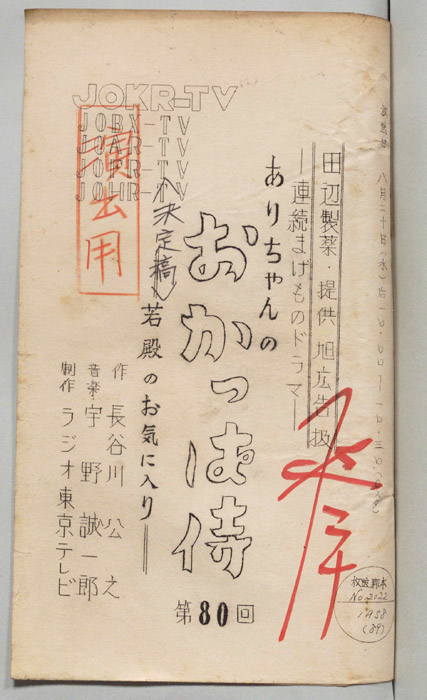 田辺製薬・提供 旭広告扱
―連続まげものドラマ―
ありちゃんの
おかっぱ侍
若殿のお気に入り――
第80回
作 長谷川公之
音楽・宇野誠一郎
制作 ラジオ東京テレビ
決定稿
JOKR-TV
JOBX-TV
JOAR-TV
JOPR-TV
JOHR-TV
演出用
八月二十日(水)
放送脚本
No.2022
1958
(89)